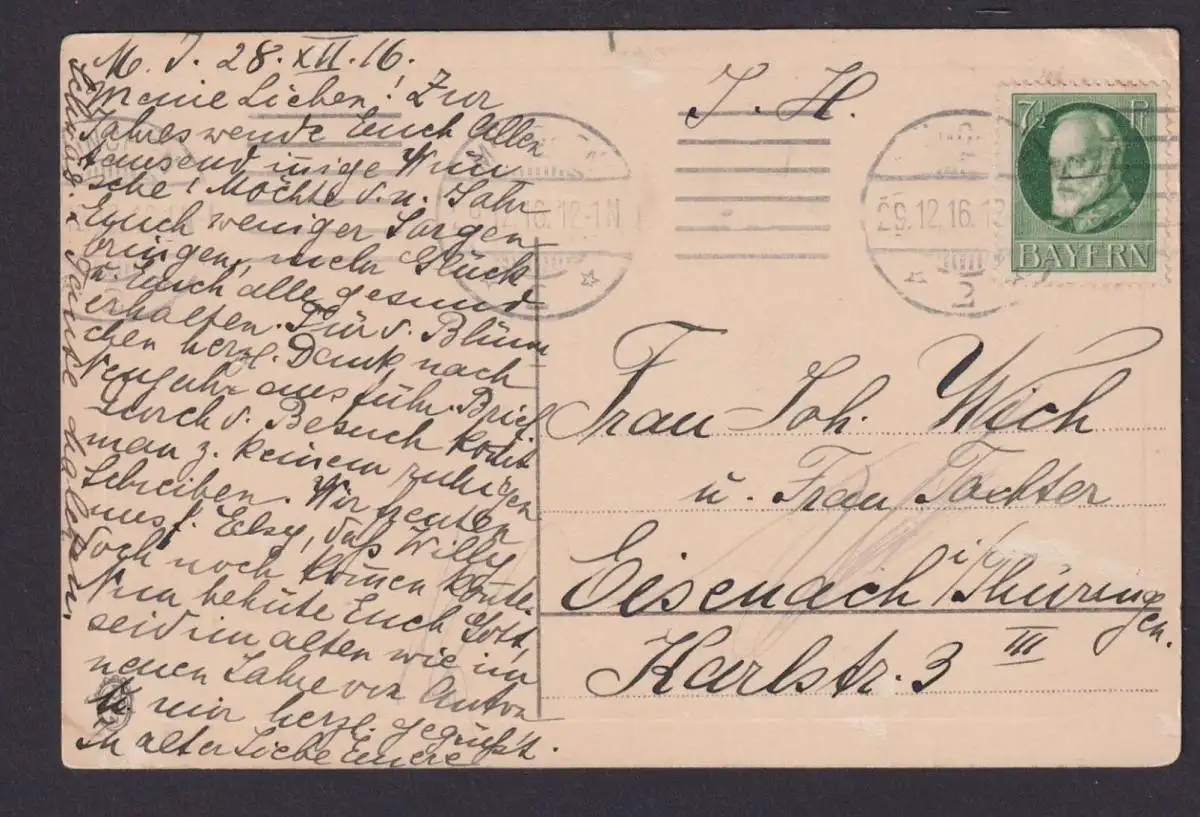 M. J. 28. XII. 16.
Meine Lieben! Zur
Jahreswende Euch Allen
tausend innige Wün
sche! Möchte d. n. Jahr
Euch weniger Sorgen
bringen, mehr Glück
u. Euch alle gesund
erhalten. Für d. Blüm-
chen herzl. Dank, nach
Neujahr ausführ. Brief
durch d. Besuch kom̄t
man z. keinem ruhigen
Schreiben. Wir freuten
uns f. Elsy, daß Willy
doch noch kom̄en konnte.
Nun behüte Euch Gott,
seid im alten wie im
neuen Jahre von Anton
u. mir herzl. gegrüßt.
In alter Liebe Euere
Schwäg. u. Tante
J. H.
7½ Pf
BAYERN
29.12.16.12-1N
29.12.16.12
2
Frau Joh. Wich
u. Frau Tochter
Eisenach i/Thüringen.
Karlstr. 3 III